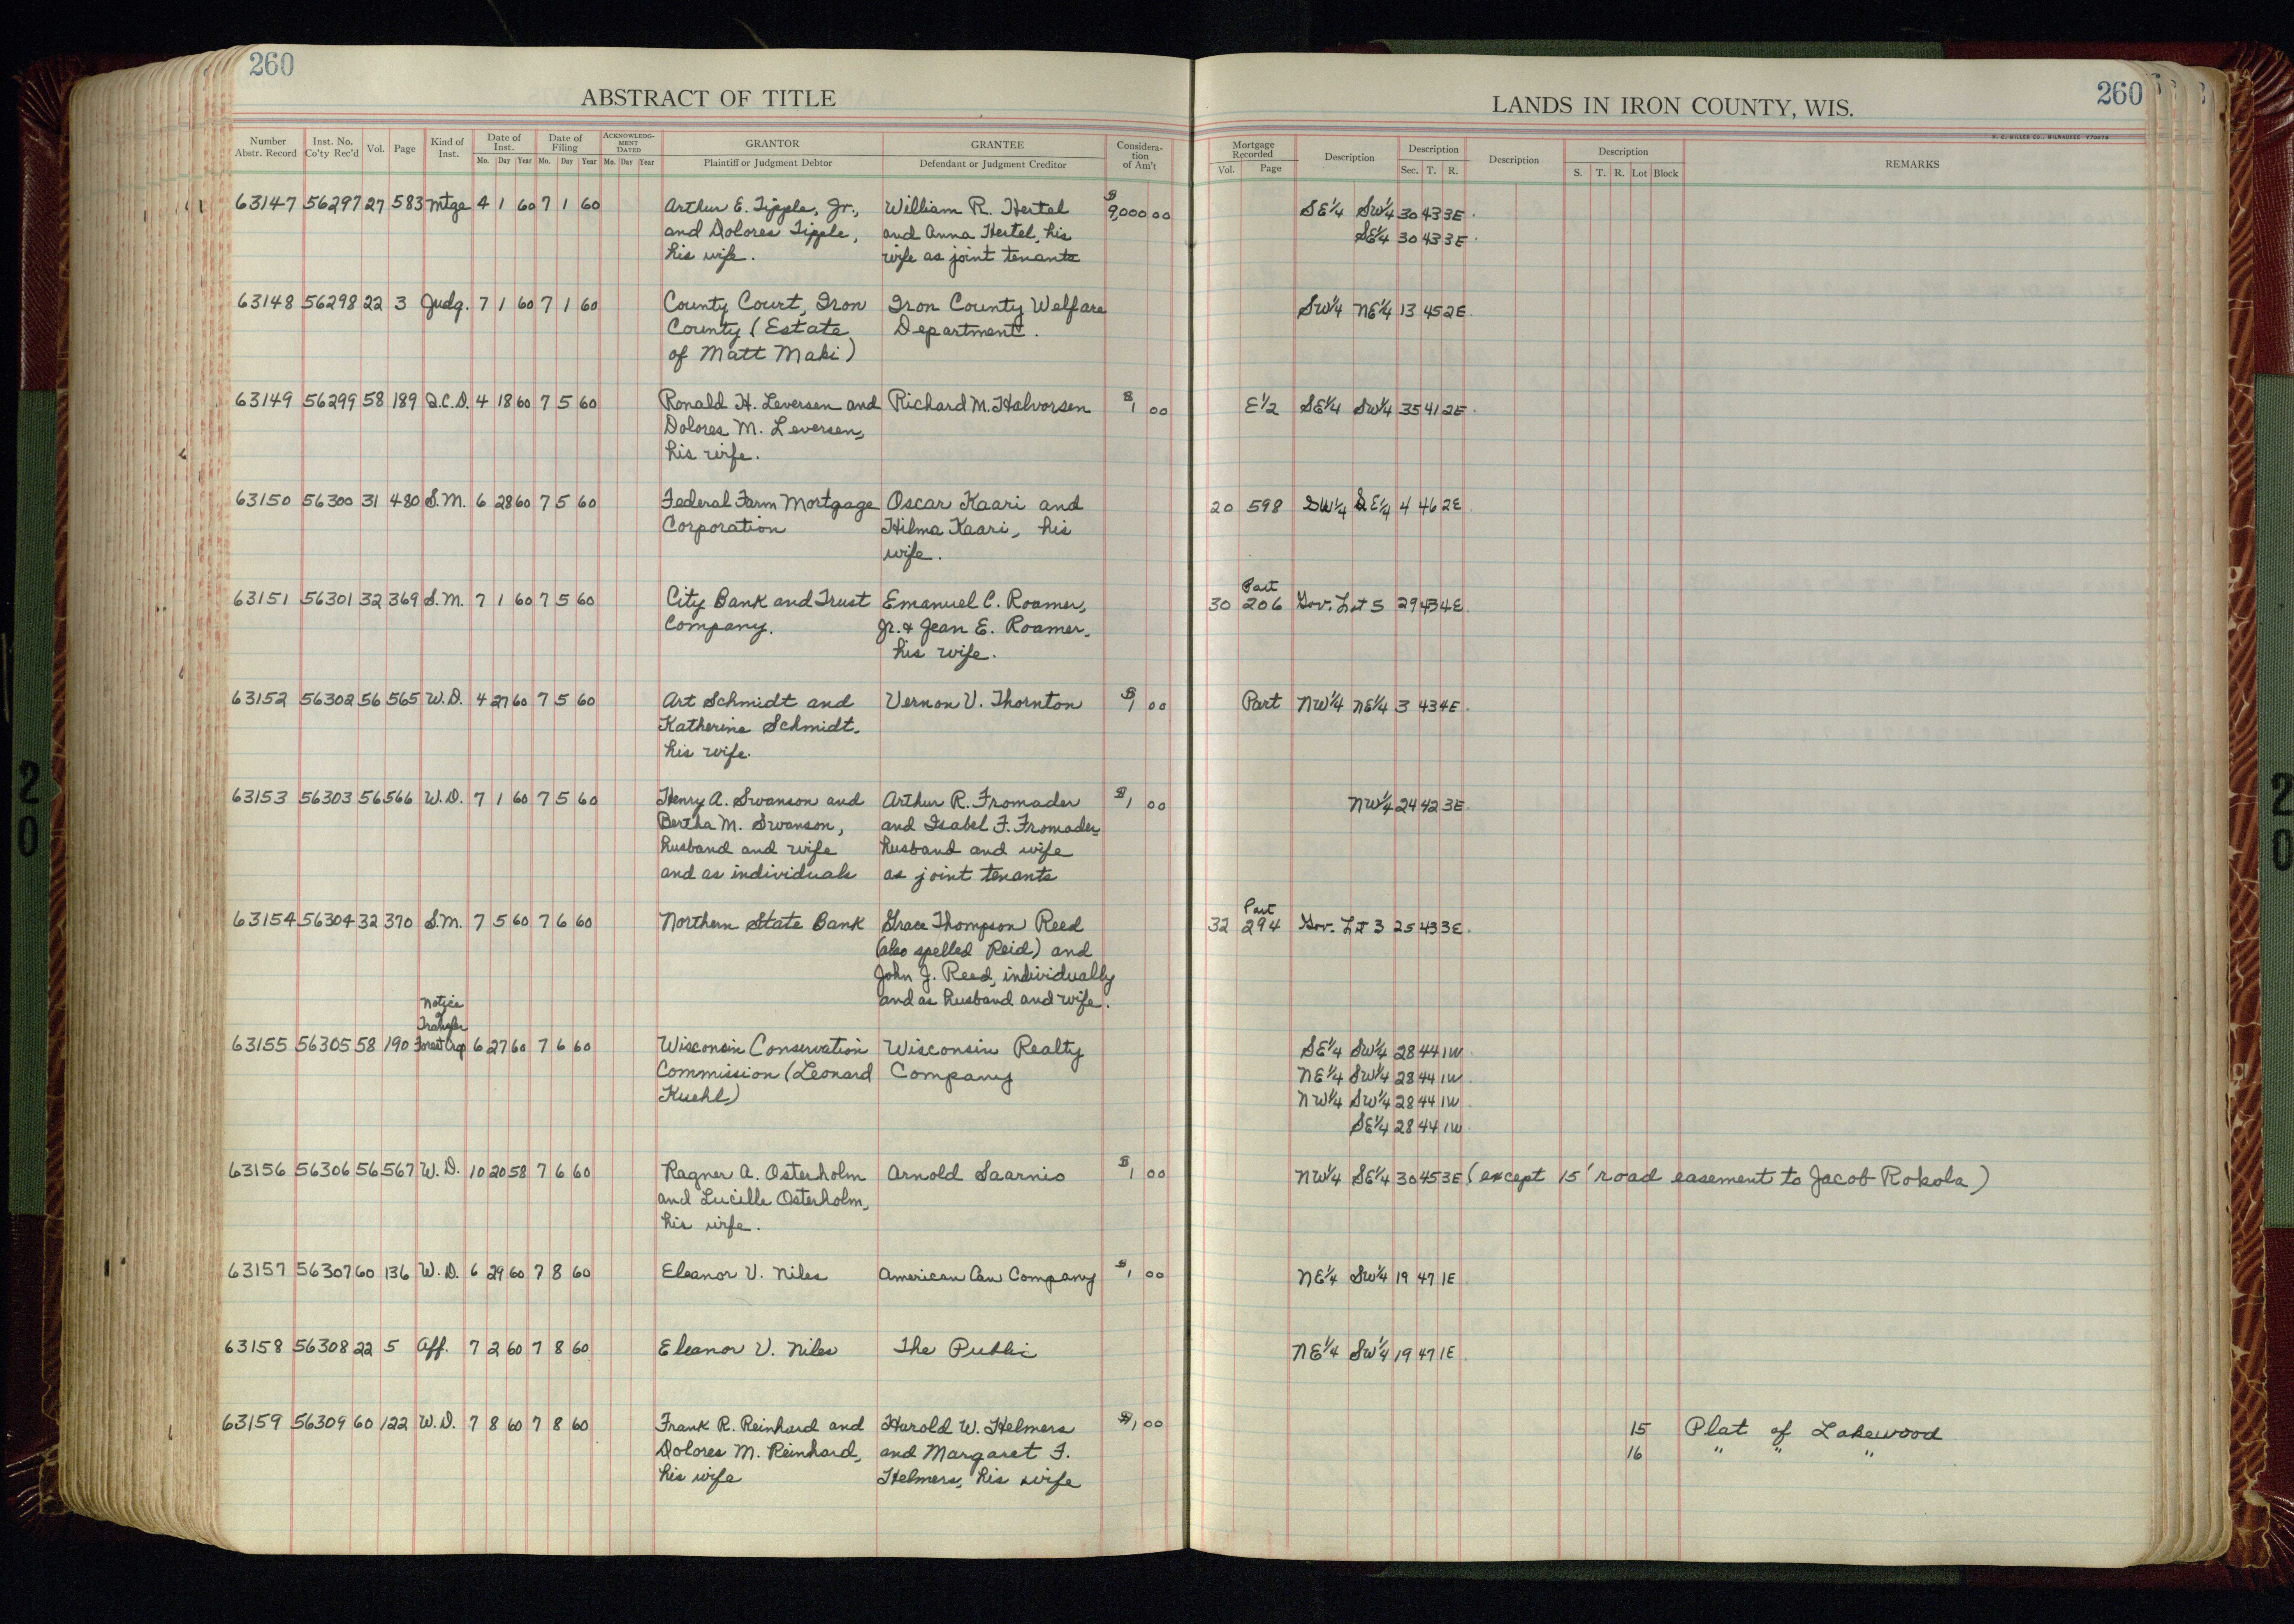 260
260
ABSTRACT OF TITLE
LANDS IN IRON COUNTY, WIS.
Number Abstr. Record Inst. No. Co'ty Rec'd Vol. Page Kind of Inst. Date of Inst. Mo. Day Year Date of Filing Mo. Day Year ACKNOWLEDGMENT DATED Mo. Day Year GRANTOR Plaintiff or Judgment Debtor GRANTEE Defendant or Judgment Creditor Consideration of Am't
Mortgage Recorded Vol. Page Description Description Sec. T. R. Description Description S. T. R. Lot Block REMARKS
63147 56297 27 583 Mtge 4 1 60 7 1 60 Arthur E. Tipple, Jr., William R. Hertel $9,000 00 SE1/4 SW1/4 30 43 3E
and Dolores Tipple, and Anna Hertel, his SE1/4 30 43 3E
his wife. wife as joint tenants
63148 56298 22 3 Judg. 7 1 60 7 1 60 County Court, Iron Iron County Welfare SW1/4 NE1/4 13 45 2E
County (Estate Department.
of Matt Maki)
63149 56299 58 189 Q.C.D. 4 18 60 7 5 60 Ronald H. Leversen and Richard M. Halvorsen $1 00 E1/2 SE1/4 SW1/4 35 41 2E
Dolores M. Leversen,
his wife.
63150 56300 31 480 S.M. 6 28 60 7 5 60 Federal Farm Mortgage Oscar Kaari and 20 598 SW1/4 SE1/4 4 46 2E
Corporation Hilma Kaari, his
wife.
Part
63151 56301 32 369 S.M. 7 1 60 7 5 60 City Bank and Trust Emanuel C. Roamer, 30 206 Gov. Lot 5 29 43 4E
Company. Jr. & Jean E. Roamer,
his wife.
63152 56302 56 565 W.D. 4 27 60 7 5 60 Art Schmidt and Vernon V. Thornton $1 00 Part NW1/4 NE1/4 3 43 4E
Katherine Schmidt,
his wife.
63153 56303 56 566 W.D. 7 1 60 7 5 60 Henry A. Swanson and Arthur R. Fromader $1 00 NW1/4 24 42 3E
Bertha M. Swanson, and Isabel F. Fromader,
husband and wife husband and wife
and as individuals as joint tenants
Part
63154 56304 32 370 S.M. 7 5 60 7 6 60 Northern State Bank Grace Thompson Reed 32 294 Gov. Lot 3 25 43 3E
(also spelled Reid) and
John J. Reed, individually
and as husband and wife.
Notice
of
Transfer
63155 56305 58 190 Forest Crop 6 27 60 7 6 60 Wisconsin Conservation Wisconsin Realty SE1/4 SW1/4 28 44 1W
Commission (Leonard Company NE1/4 SW1/4 28 44 1W
Kuehl) NW1/4 SW1/4 28 44 1W
SE1/4 28 44 1W
63156 56306 56 567 W.D. 10 20 58 7 6 60 Ragner A. Osterholm Arnold Saarnio $1 00 NW1/4 SE1/4 30 45 3E (except 15' road easement to Jacob Rokola)
and Lucille Osterholm,
his wife.
63157 56307 60 136 W.D. 6 29 60 7 8 60 Eleanor V. Niles American Can Company $1 00 NE1/4 SW1/4 19 47 1E
63158 56308 22 5 Aff. 7 2 60 7 8 60 Eleanor V. Niles The Public NE1/4 SW1/4 19 47 1E
63159 56309 60 122 W.D. 7 8 60 7 8 60 Frank R. Reinhard and Harold W. Helmers $1 00 15 Plat of Lakewood
Dolores M. Reinhard, and Margaret F. 16 " " "
his wife Helmers, his wife
20
20